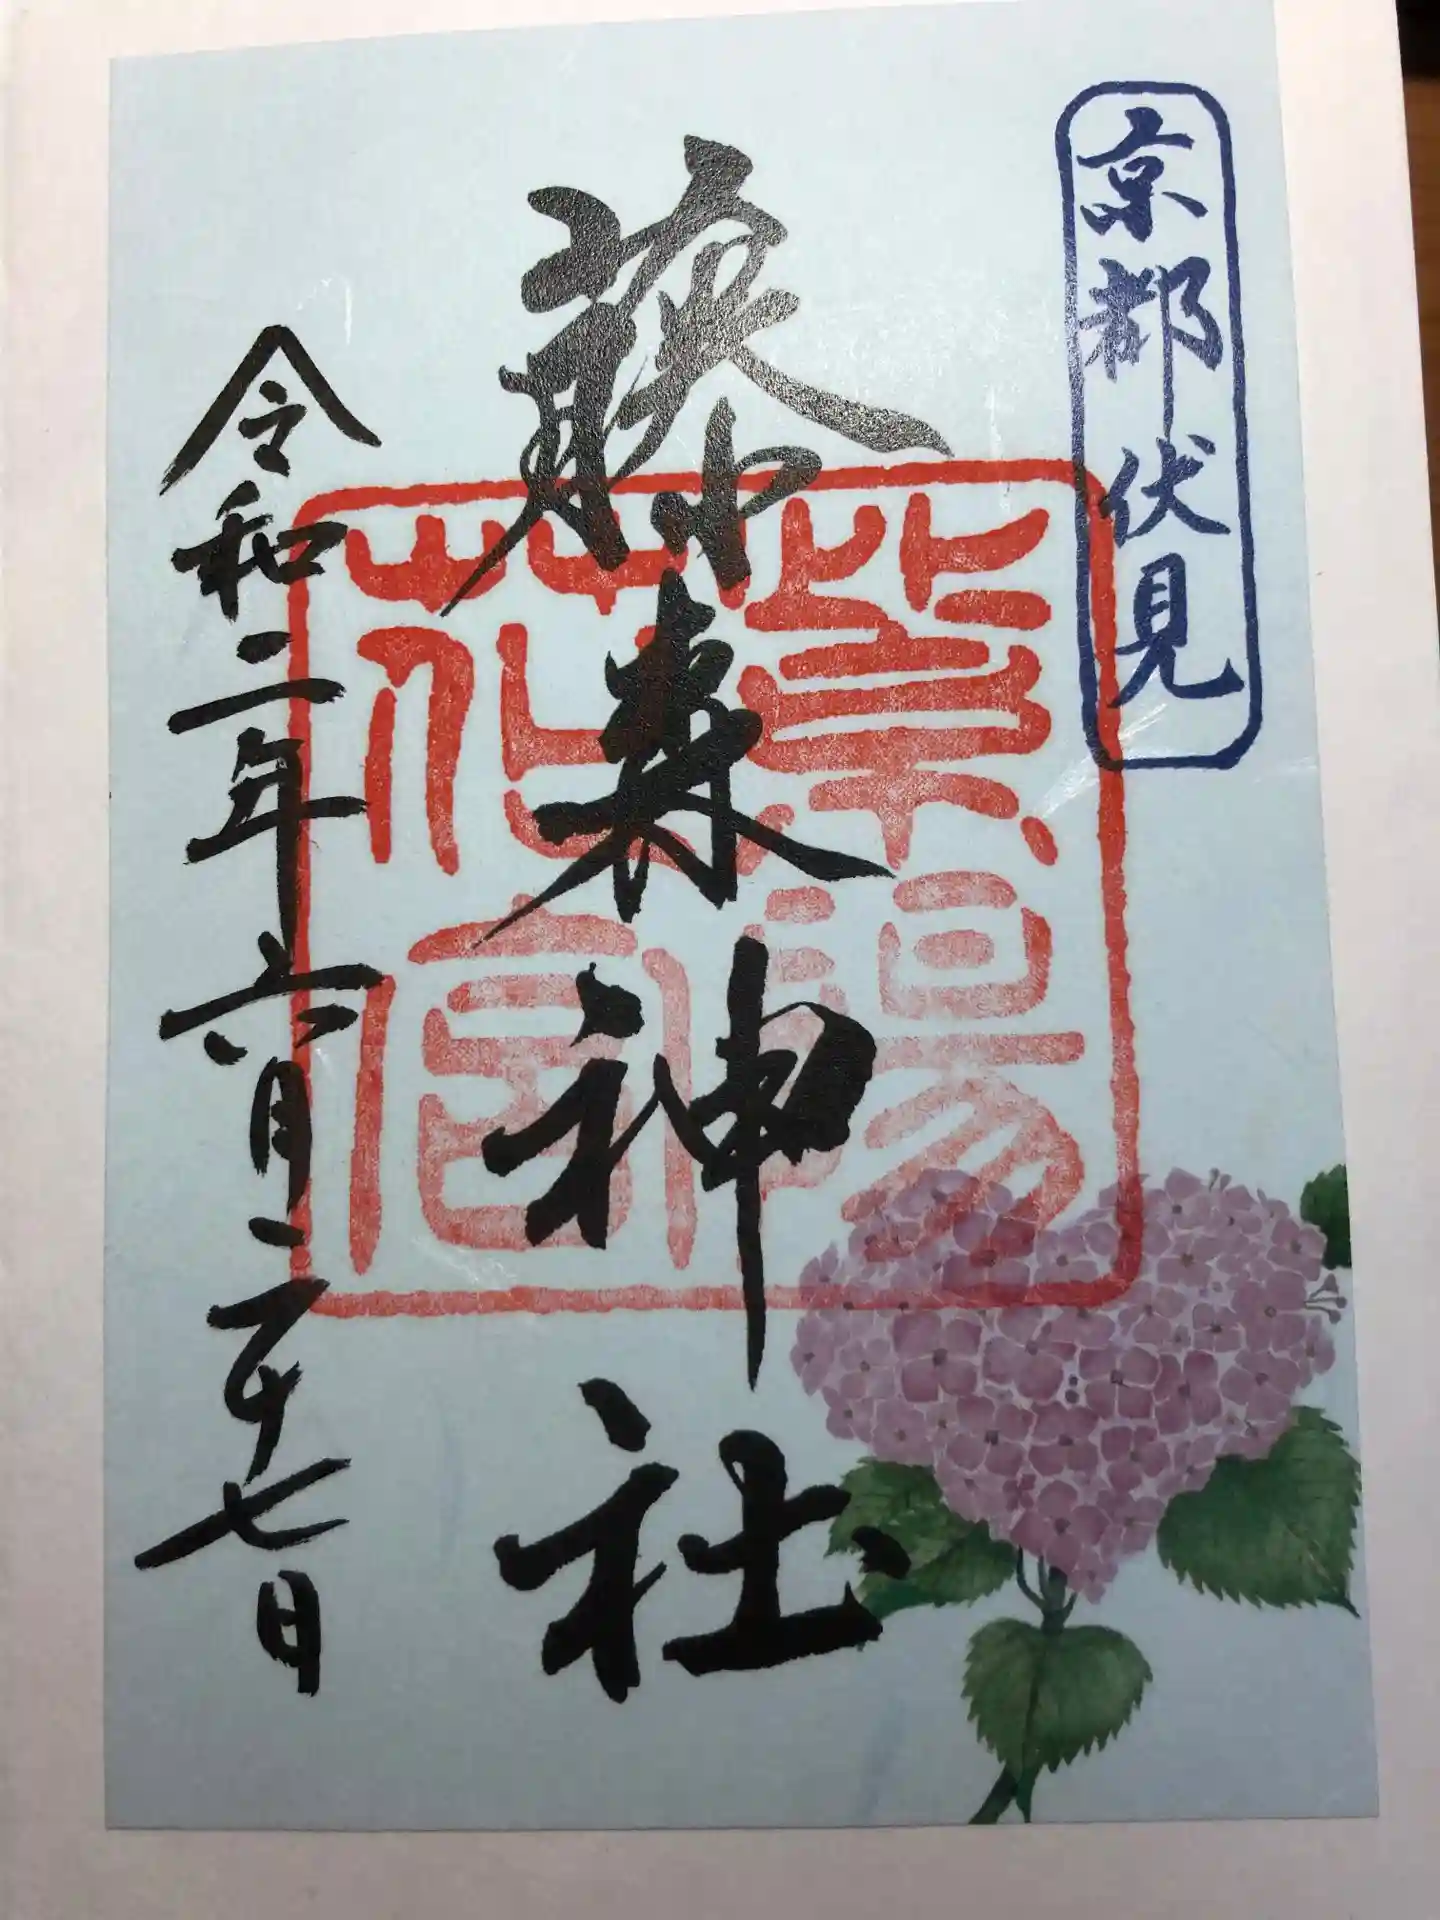 京都伏見
藤森神社
紫陽花宮
令和二年六月二十七日